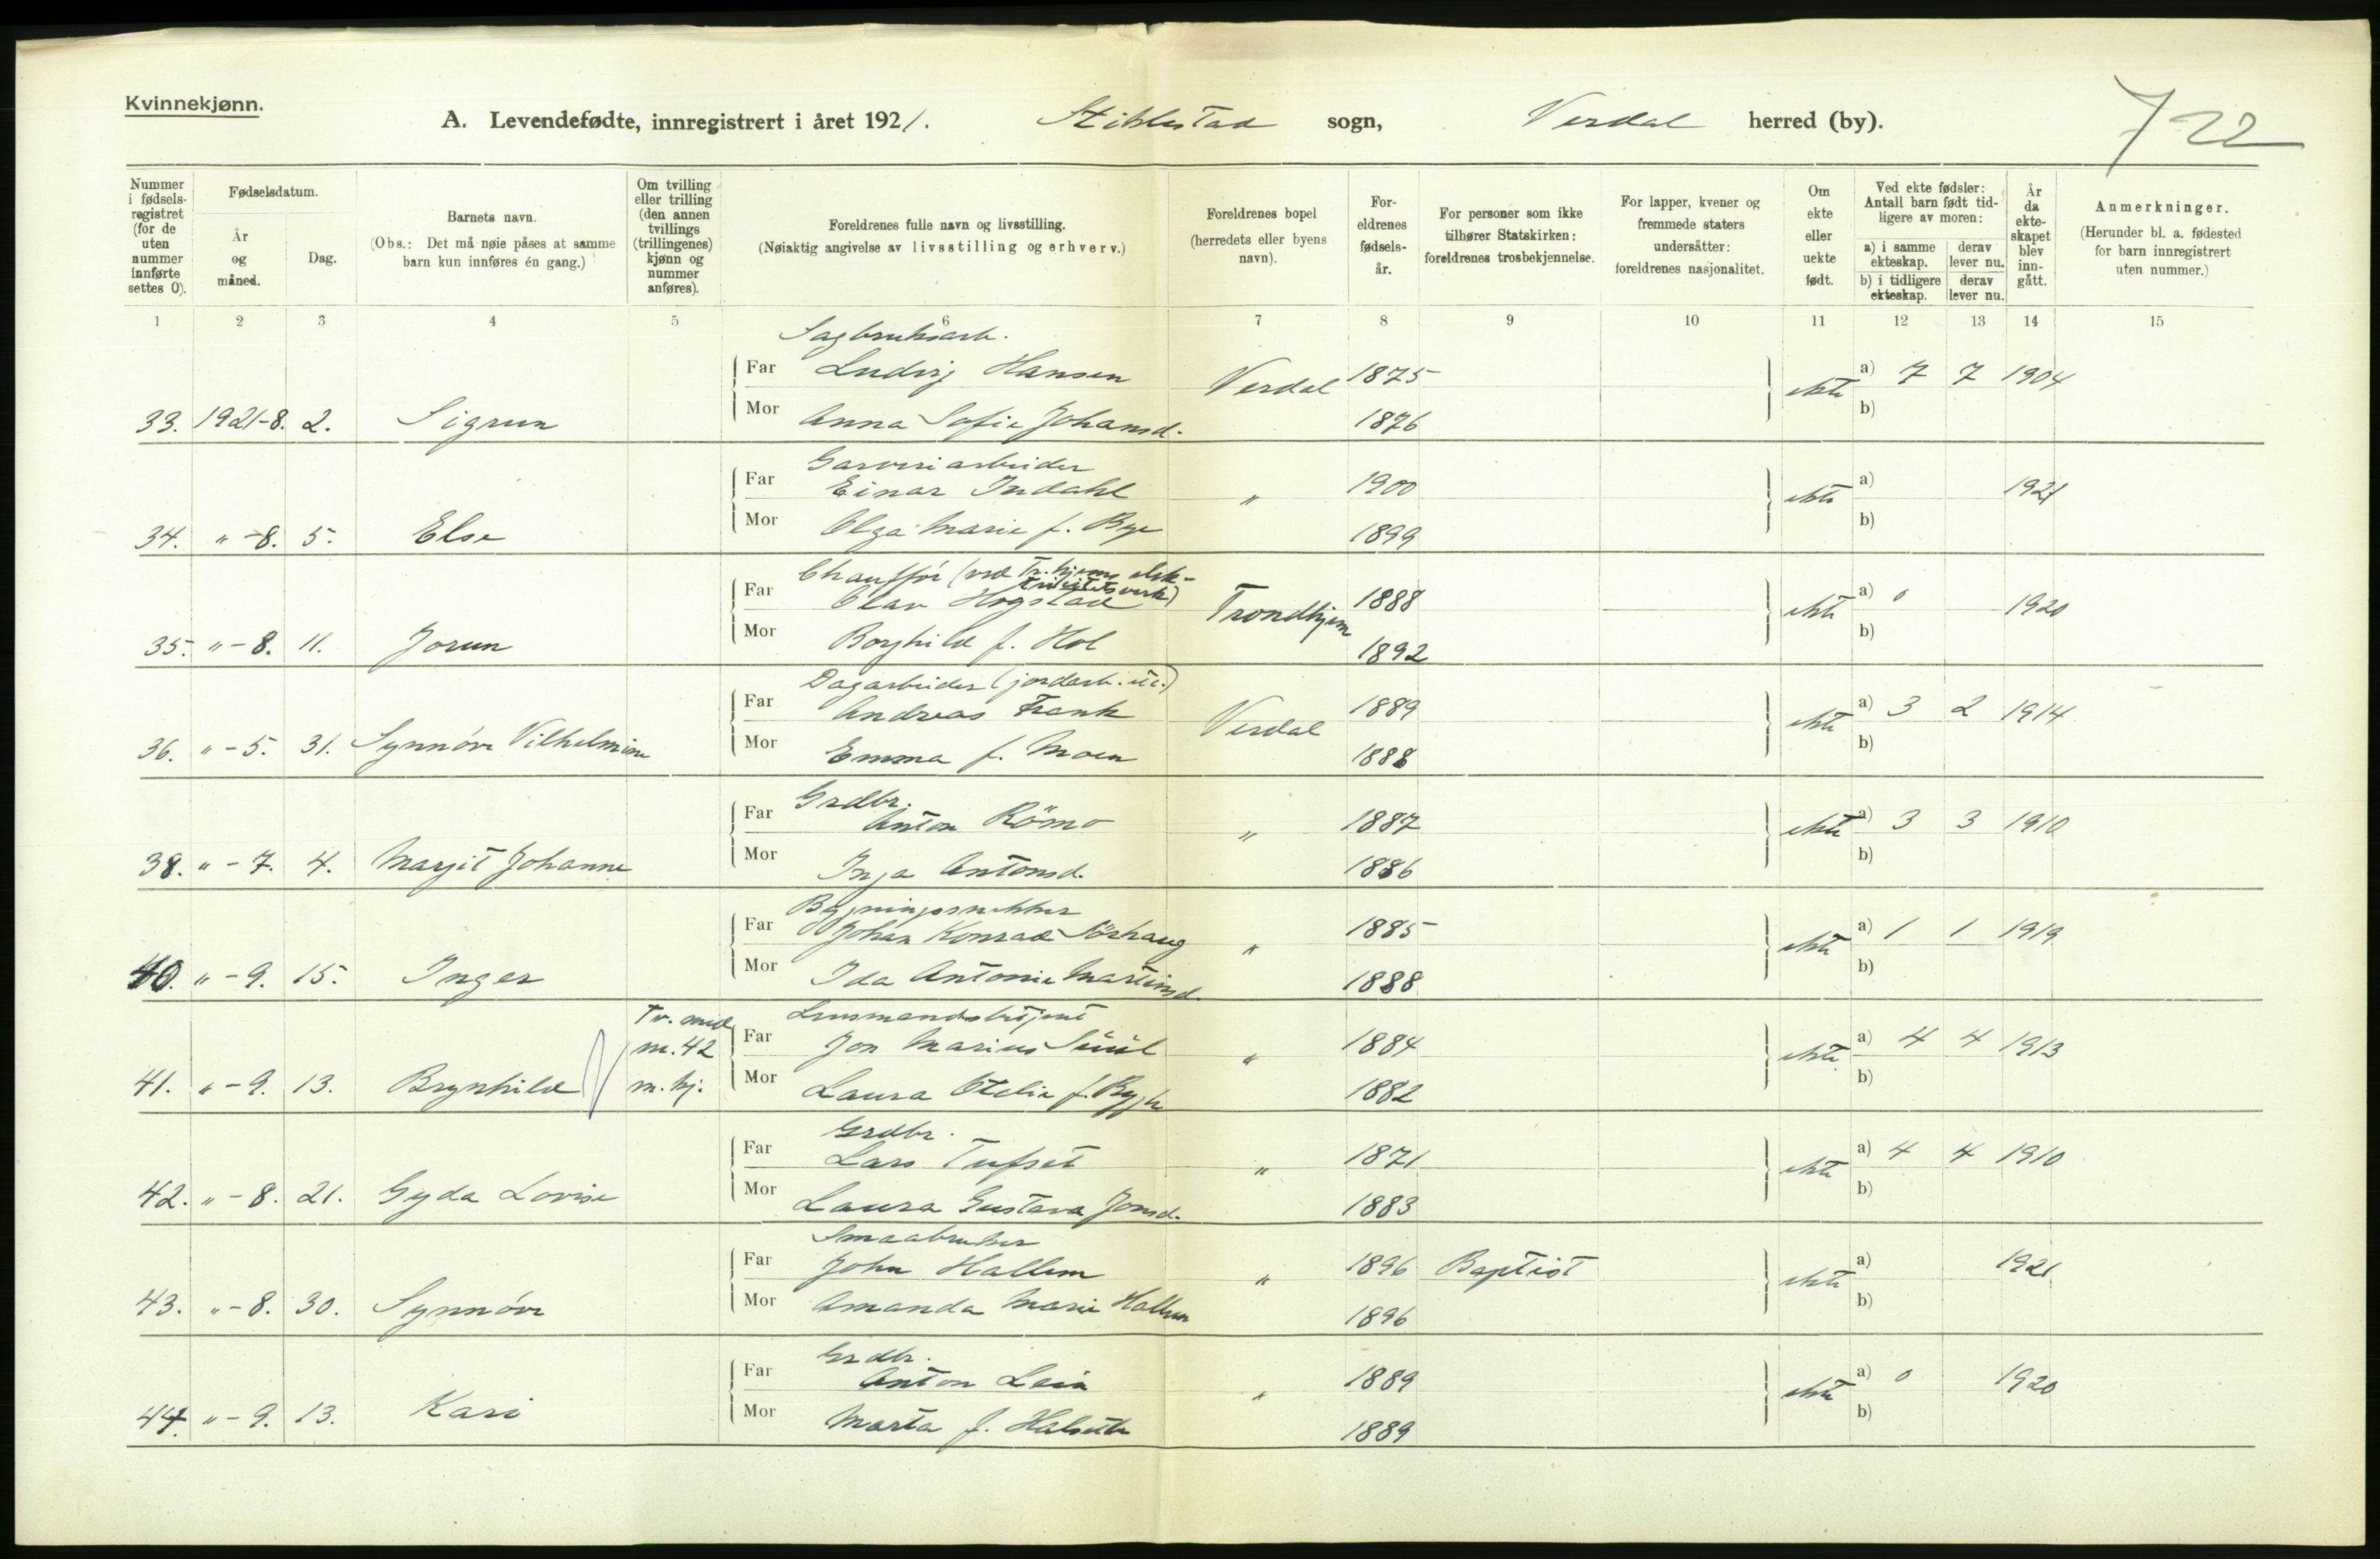 Kvinnekjønn.
A. Levendefødte, innregistrert i året 1921. Stiklestad sogn, Verdal herred (by). 722
Nummer i fødsels-registret (for de uten nummer innførte settes 0).
Fødselsdatum.
År og måned.
Dag.
Barnets navn.
(Obs.: Det må nøie påses at samme barn kun innføres én gang.)
Om tvilling eller trilling (den annen tvillings (trillingenes) kjønn og nummer anføres).
Foreldrenes fulle navn og livsstilling.
(Nøiaktig angivelse av livsstilling og erhverv.)
Foreldrenes bopel (herredets eller byens navn).
For-eldrenes fødsels-år.
For personer som ikke tilhører Statskirken: foreldrenes trosbekjennelse.
For lapper, kvener og fremmede staters undersåtter: foreldrenes nasjonalitet.
Om ekte eller uekte født.
Ved ekte fødsler: Antall barn født tid-ligere av moren:
a) i samme ekteskap.
derav lever nu.
b) i tidligere ekteskap.
derav lever nu.
År da ekte-skapet blev inn-gått.
Anmerkninger.
(Herunder bl. a. fødested for barn innregistrert uten nummer.)
1 2 3 4 5 6 7 8 9 10 11 12 13 14 15
Sagbruksarb.
Far Ludvig Hansen Verdal 1875 ekte a) 7 7 1904
33. 1921-8. 2. Sigrun Mor Anna Sofie Johansd. 1876 b)
Garveriarbeider
Far Einar Indahl " 1900 ekte a) 1921
34. " - 8. 5. Else Mor Olga Marie f. Bye 1899 b)
Chauffør (ved Tr.hjems elek-
tricitetsverk)
Far Olav Hogstad Trondhjem 1888 ekte a) 0 1920
35. " - 8. 11. Jorun Mor Borghild f. Hol 1892 b)
Dagarbeider (jordarb. etc.)
Far Andreas Frank Verdal 1889 ekte a) 3 2 1914
36. " - 5. 31. Synnøve Vilhelmine Mor Emma f. Moen 1888 b)
Grdbr.
Far Anton Römo " 1887 ekte a) 3 3 1910
38. " - 7. 4. Margit Johanne Mor Inga Antonsd. 1886 b)
Bygningssnekker
Far Johan Konrad Sörhaug " 1885 ekte a) 1 1 1919
40. " - 9. 15. Inger Mor Ida Antonie Martinsd. 1888 b)
Tv. med
nr. 42
m. kj.
Lensmandsbetjent
Far Jon Marius Suul " 1884 ekte a) 4 4 1913
41. " - 9. 13. Brynhild Mor Laura Otelie f. Rygh 1882 b)
Grdbr.
Far Lars Tufset " 1871 ekte a) 4 4 1910
42. " - 8. 21. Gyda Lovise Mor Laura Gustava Jonsd. 1883 b)
Smaabruker
Far John Hallem " 1896 Baptist ekte a) 1921
43. " - 8. 30. Synnøve Mor Amanda Marie Hallem 1896 b)
Grdbr.
Far Anton Lein " 1889 ekte a) 0 1920
44. " - 9. 13. Kari Mor Marta f. 1889 b)